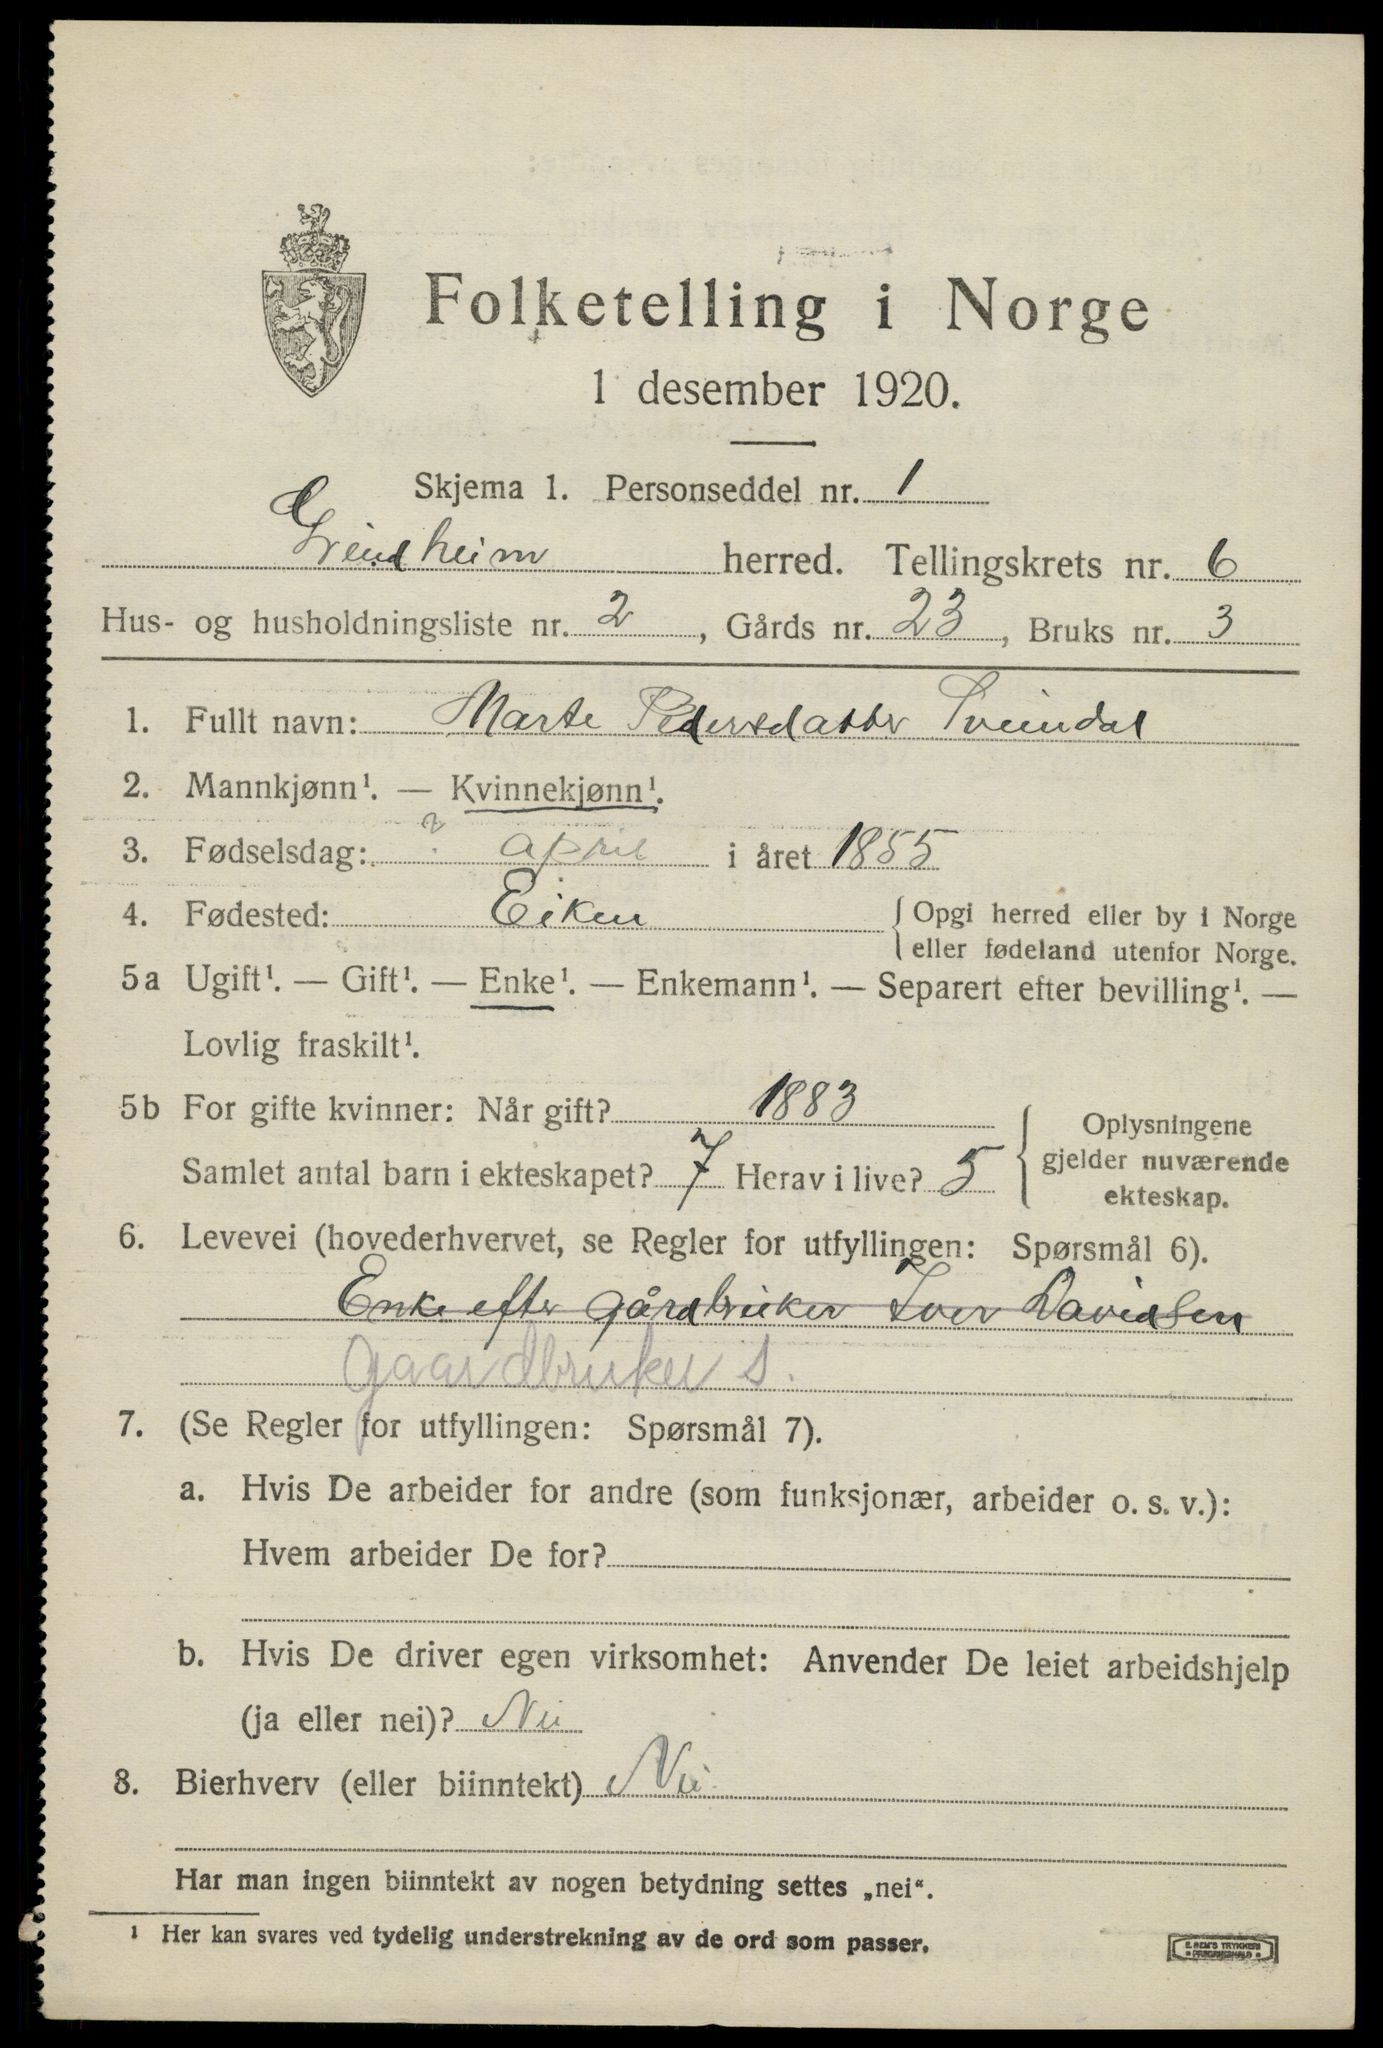 Folketelling i Norge
1 desember 1920.
Skjema 1. Personseddel nr. 1
Grindheim herred. Tellingskrets nr. 6
Hus- og husholdningsliste nr. 2, Gårds nr. 23, Bruks nr. 3
1. Fullt navn: Marte Pedersdatter Sveindal
2. Mannkjønn¹. — Kvinnekjønn¹.
3. Fødselsdag: ? april i året 1855
4. Fødested: Eiken { Opgi herred eller by i Norge
eller fødeland utenfor Norge.
5a Ugift¹. — Gift¹. — Enke¹. — Enkemann¹. — Separert efter bevilling¹. —
Lovlig fraskilt¹.
5b For gifte kvinner: Når gift? 1883
Samlet antal barn i ekteskapet? 7 Herav i live? 5
{ Oplysningene
gjelder nuværende
ekteskap.
6. Levevei (hovederhvervet, se Regler for utfyllingen: Spørsmål 6).
Enke efter gårdbruker Iver Davidsen
Gaardbruker s.
7. (Se Regler for utfyllingen: Spørsmål 7).
a. Hvis De arbeider for andre (som funksjonær, arbeider o. s. v.):
Hvem arbeider De for?
b. Hvis De driver egen virksomhet: Anvender De leiet arbeidshjelp
(ja eller nei)? Nei
8. Bierhverv (eller biinntekt) Nei
Har man ingen biinntekt av nogen betydning settes „nei“.
¹ Her kan svares ved tydelig understrekning av de ord som passer.